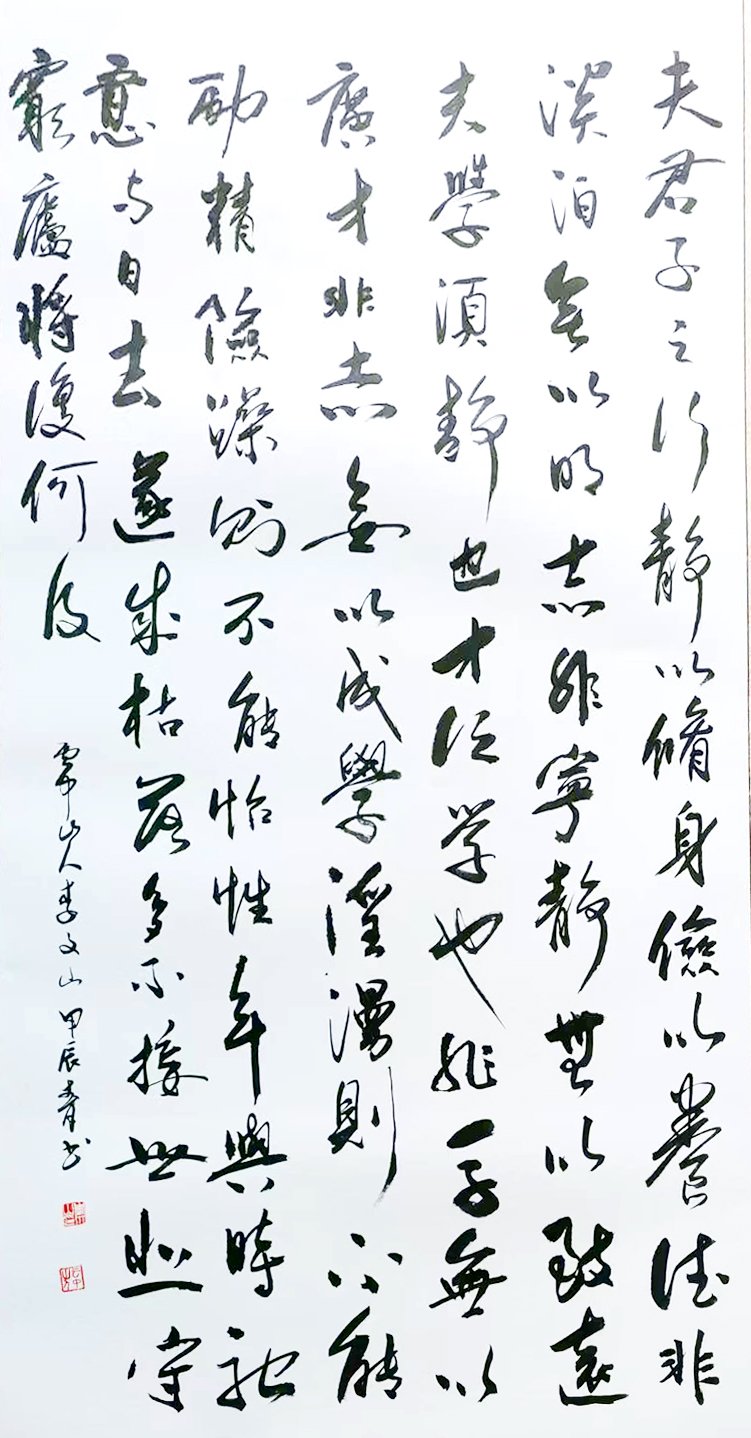 夫君子之行静以脩身儉以養德非
淡泊無以明志非寧静無以致遠
夫學須静也才须学也非学無以
廣才非志無以成學淫漫則不能
励精險躁则不能怡性年與時驰
意与日去遂成枯落多不接世悲守
窮廬將復何及
山人李文山甲辰春书